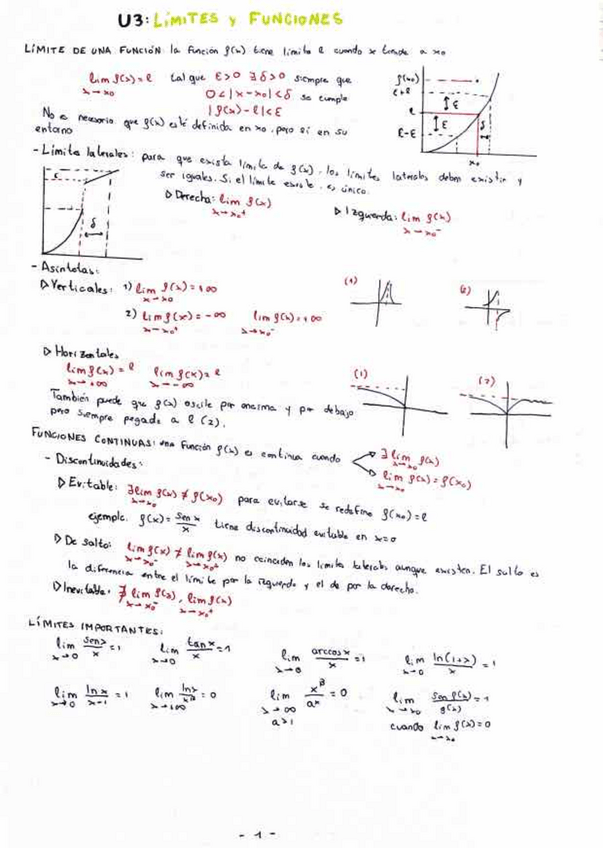 U3: LÍMITES y FUNCIONES
LÍMITE DE UNA FUNCIÓN: la función f(x) tiene límite l cuando x tiende a x₀
lim f(x) = l tal que ε>0 ∃δ>0 siempre que
x→x₀ 0<|x-x₀|<δ se cumple
|f(x)-l|<ε
No es necesario que f(x) esté definida en x₀, pero sí en su
entorno
f(x₀)
l+ε
l
ε
ε
l-ε
δ
x₀
- Límites laterales: para que exista límite de f(x), los límites laterales deben existir y
ser iguales. Si el límite existe, es único.
▷ Derecha: lim f(x)
x→x₀⁺
▷ Izquierda: lim f(x)
x→x₀⁻
δ
- Asíntotas:
▷ Verticales: 1) lim f(x) = +∞
x→x₀
2) lim f(x) = -∞ lim f(x) = +∞
x→x₀⁺ x→x₀⁻
(1)
(2)
▷ Horizontales
lim f(x) = l lim f(x) = l
x→+∞ x→-∞
También puede que f(x) oscile por encima y por debajo
pero siempre pegado a l (2).
(1)
(2)
FUNCIONES CONTINUAS: una función f(x) es continua cuando
∃ lim f(x)
x→x₀
lim f(x) = f(x₀)
x→x₀
- Discontinuidades:
▷ Evitable: ∃ lim f(x) ≠ f(x₀) para evitarse se redefine f(x₀) = l
x→x₀
ejemplo. f(x) = sen x / x tiene discontinuidad evitable en x=0
▷ De salto: lim f(x) ≠ lim f(x) no coinciden los límites laterales aunque existen. El salto es
x→x₀⁻ x→x₀⁺
la diferencia entre el límite por la izquierda y el de por la derecha.
▷ Inevitable: ∄ lim f(x), lim f(x)
x→x₀⁻ x→x₀⁺
LÍMITES IMPORTANTES:
lim sen x / x = 1 lim tan x / x = 1 lim arccos x / x = 1 lim ln(1+x) / x = 1
x→0 x→0 x→0 x→0
lim ln x / x-1 = 1 lim ln x / x^β = 0 lim x^β / aˣ = 0 lim sen f(x) / f(x) = 1
x→0 x→+∞ x→∞ x→x₀
a>1 cuando lim f(x) = 0
x→x₀
- 1 -